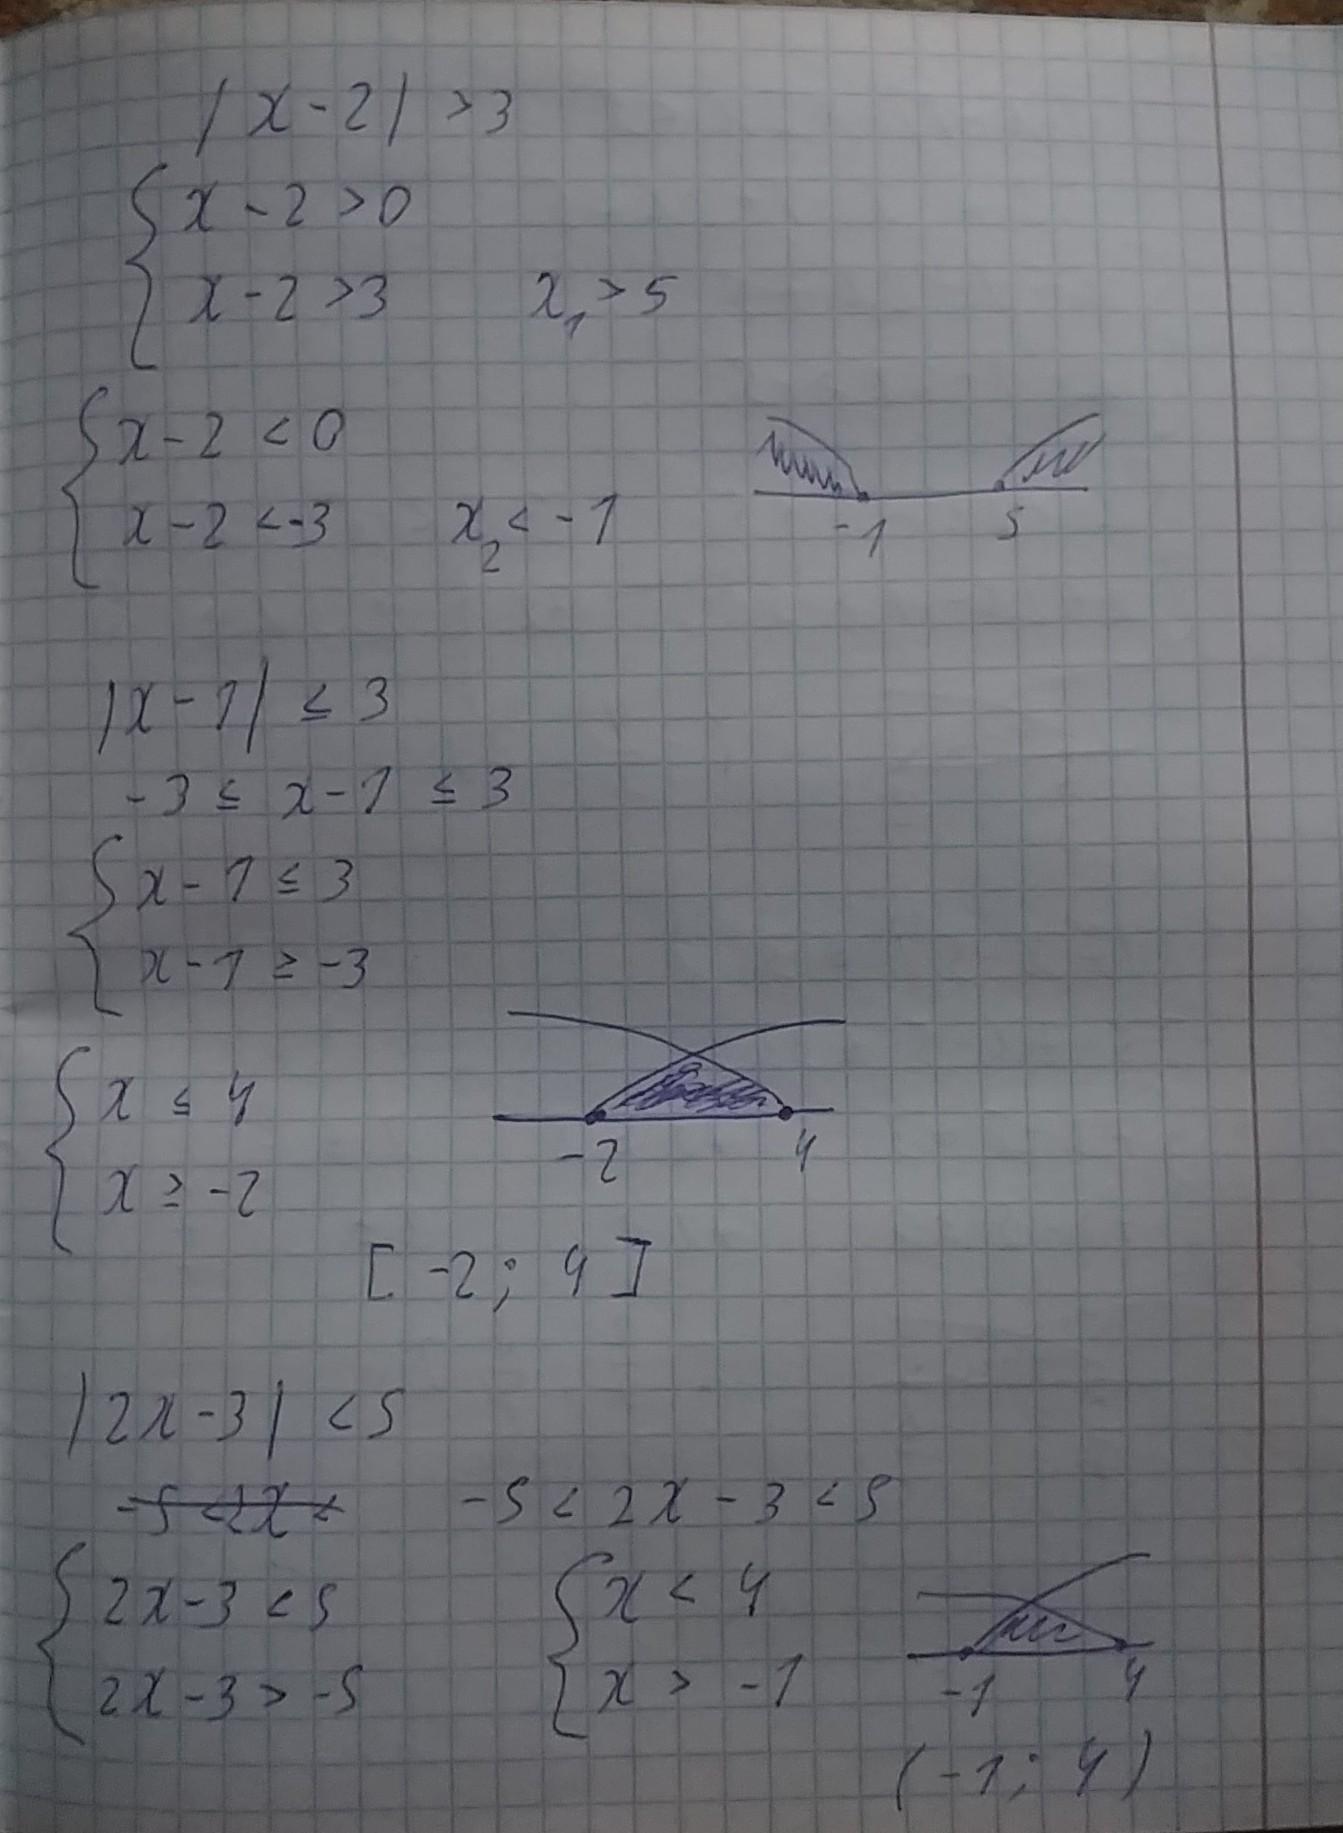 |x-2| >3
x-2>0
x-2>3 x₁>5
x-2<0
x-2<-3 x₂<-1
-1 5
|x-1| ≤ 3
-3 ≤ x-1 ≤ 3
x-1 ≤ 3
x-1 ≥ -3
x ≤ 4
x ≥ -2
-2 4
[-2; 4]
|2x-3| <5
-5<2x< -5<2x-3<5
2x-3<5 x<4
2x-3>-5 x > -1
-1 4
(-1; 4)